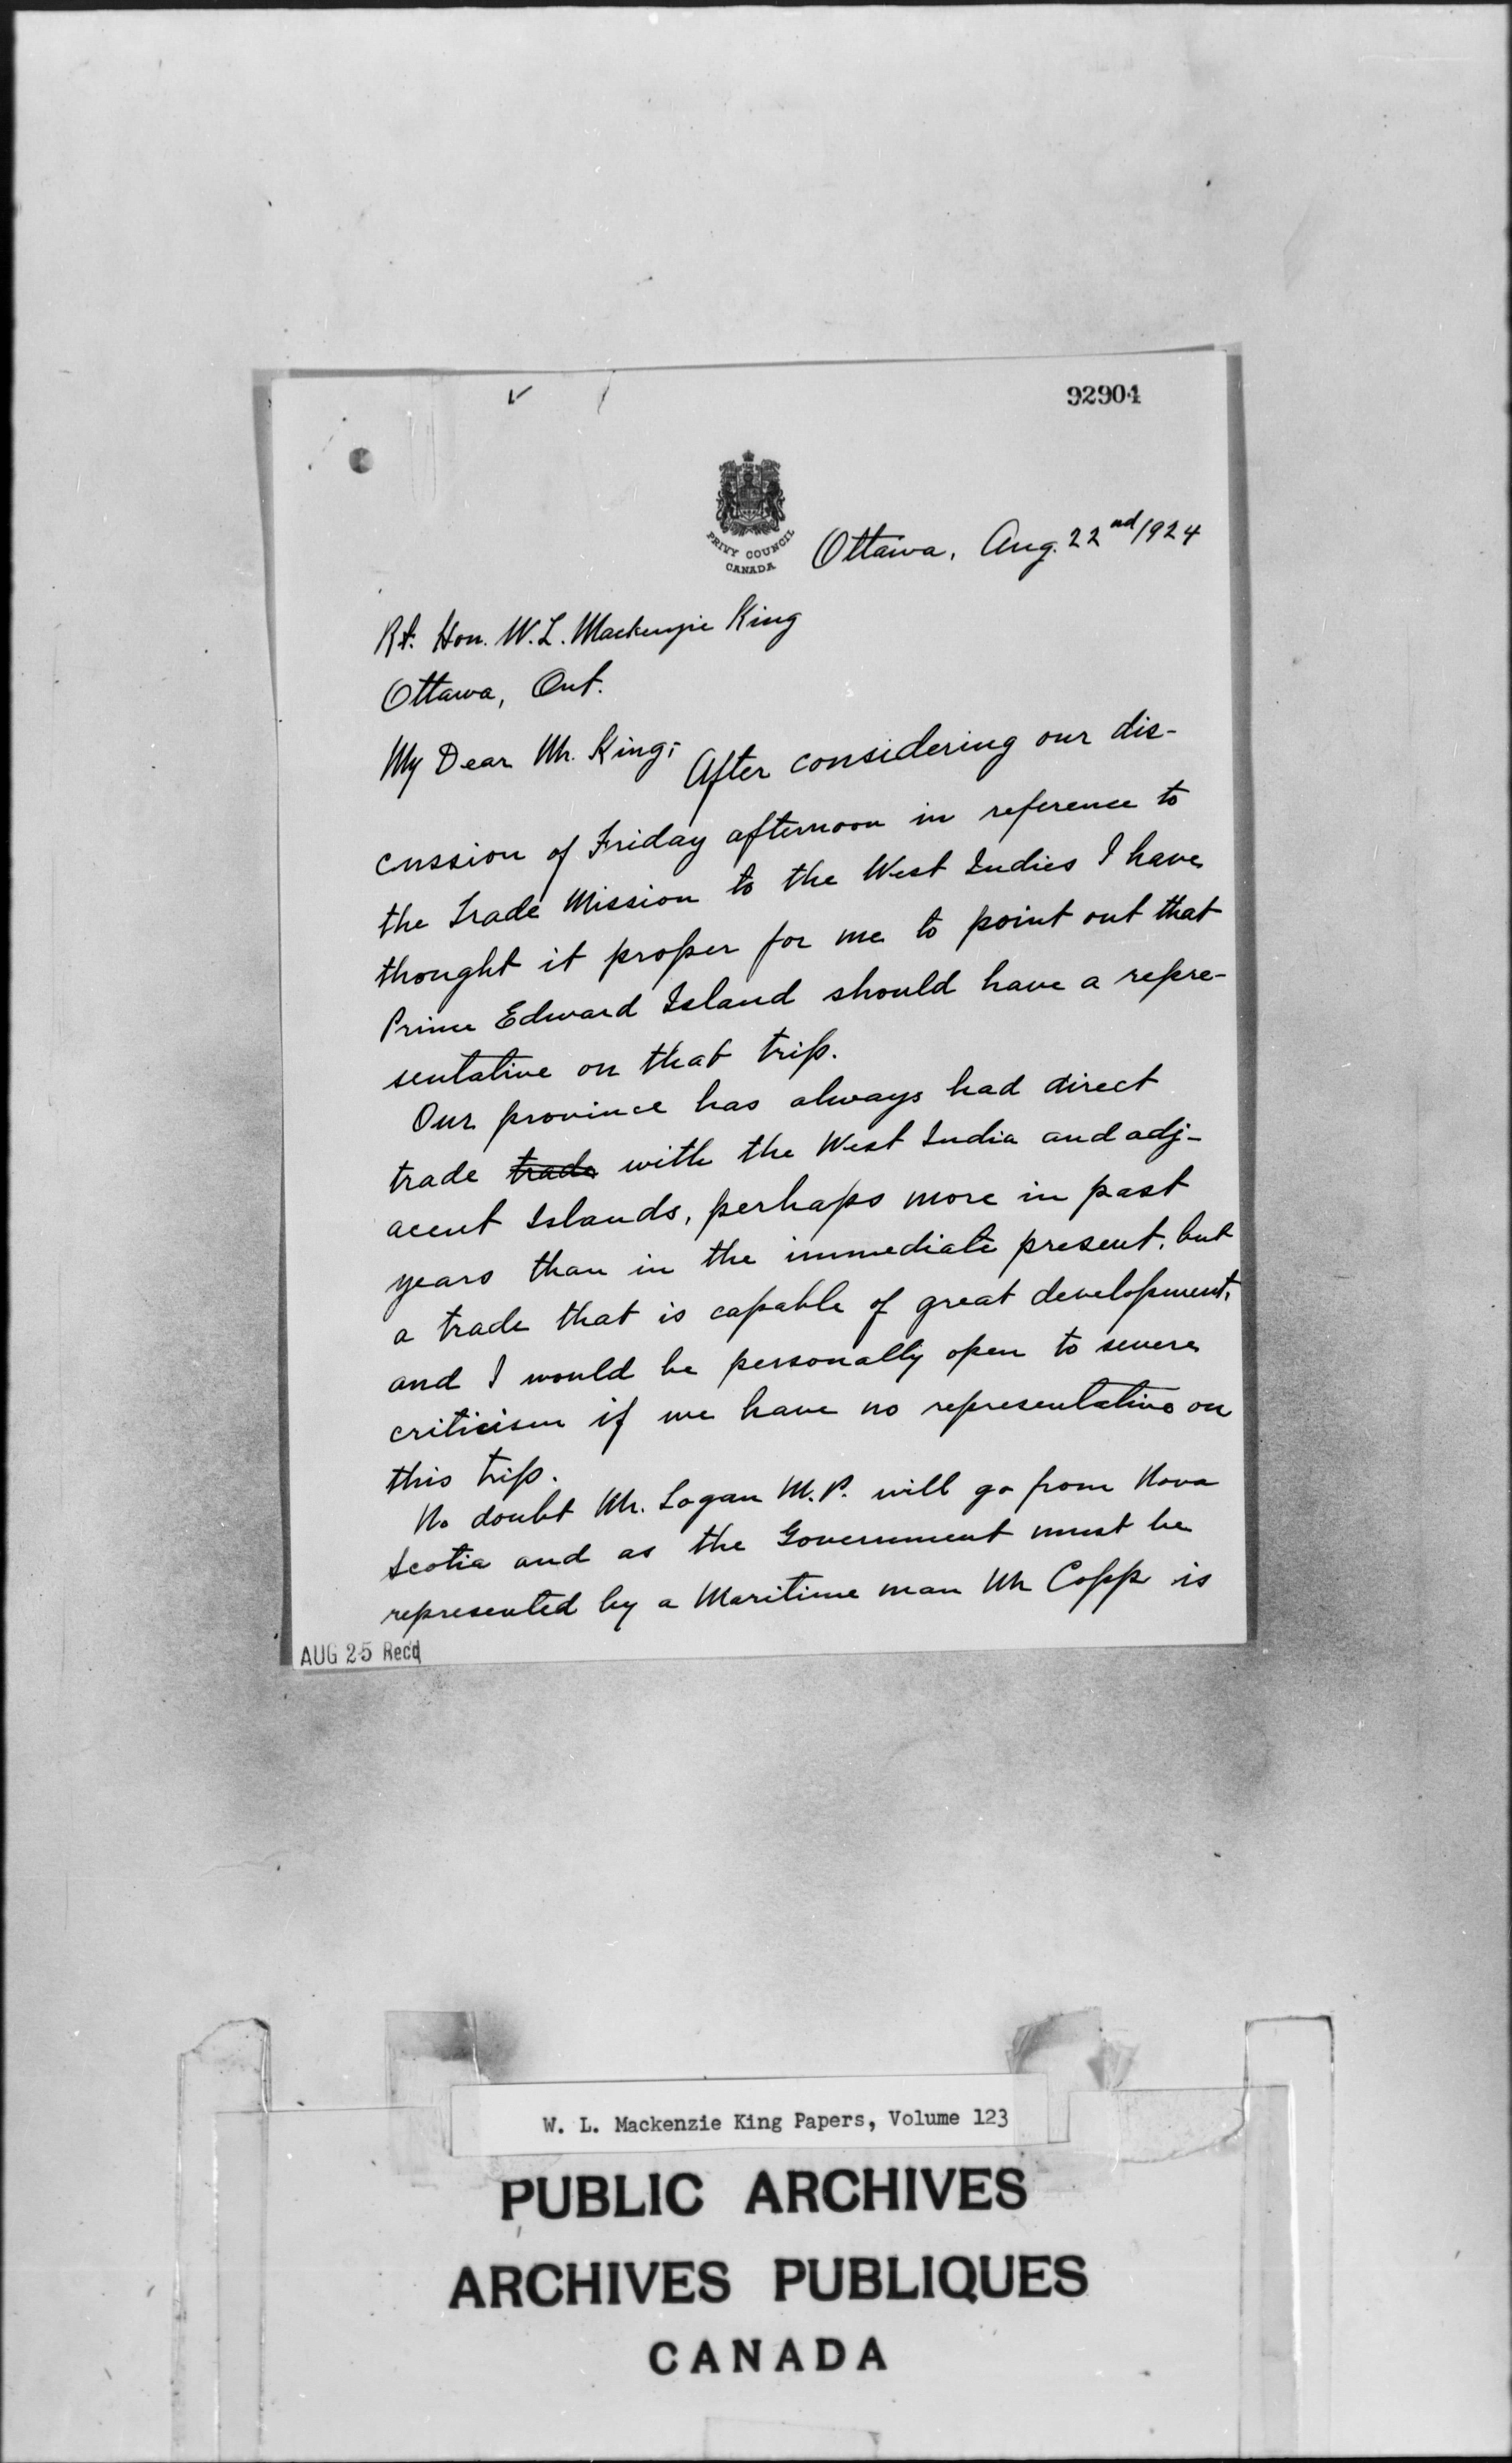 92904
PRIVY COUNCIL
CANADA
Ottawa, Aug. 22nd/1924
Rt. Hon. W. L. Mackenzie King
Ottawa, Ont.
My Dear Mr. King;
After considering our dis-
cussion of Friday afternoon in reference to
the Trade Mission to the West Indies I have
thought it proper for me to point out that
Prince Edward Island should have a repre-
sentative on that trip.
Our province has always had direct
trade trade with the West India and adj-
acent Islands, perhaps more in past
years than in the immediate present, but
a trade that is capable of great development,
and I would be personally open to severe
criticism if we have no representative on
this trip.
No doubt Mr. Logan M.P. will go from Nova
Scotia and as the Government must be
represented by a Maritime man Mr Copp is
AUG 25 Recd
W. L. Mackenzie King Papers, Volume 123
PUBLIC ARCHIVES
ARCHIVES PUBLIQUES
CANADA